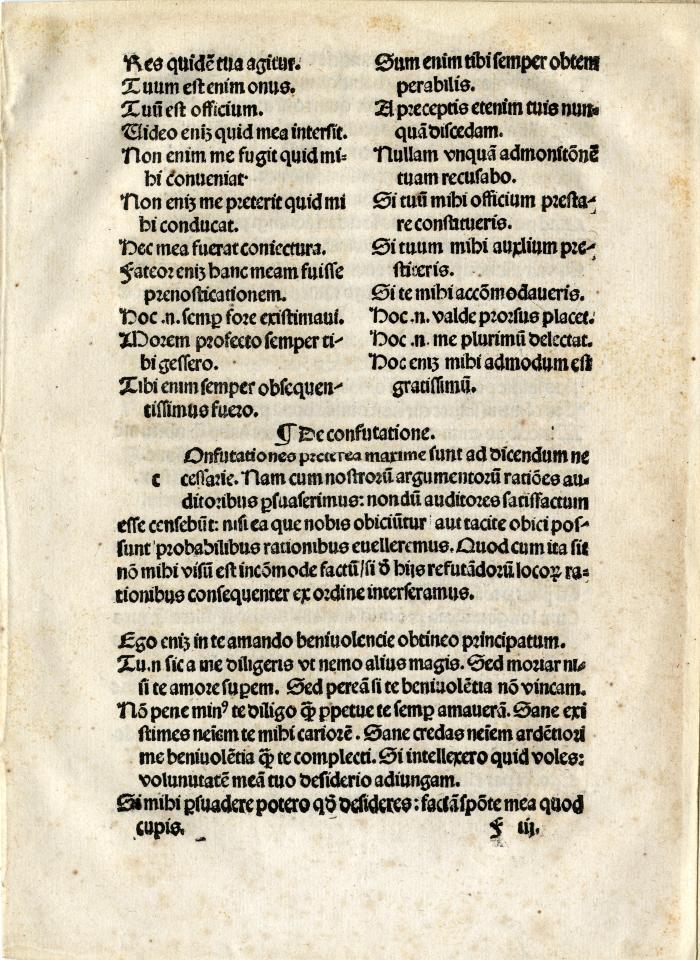 Res quidē tua agitur.
Tuum est enim onus.
Tuū est officium.
Uideo eniʒ quid mea intersit.
Non enim me fugit quid mi⸗
hi cōueniat·
Non eniʒ me preterit quid mi
hi conducat.
Hec mea fuerat coniectura.
Fateor eniʒ hanc meam fuisse
prenosticationem.
Hoc .n. semꝑ fore existimaui.
Morem profecto semper ti⸗
bi gessero.
Tibi enim semper obsequen⸗
tissimus fuero.
Sum enim tibi semper obtem
perabilis.
A preceptis etenim tuis nun⸗
quā discedam.
Nullam vnquā admonitōnē
tuam recusabo.
Si tuū mihi officium presta⸗
re constitueris.
Si tuum mihi auxlium pre⸗
stiteris.
Si te mihi accōmodaueris.
Hoc .n. valde prorsus placet.
Hoc .n. me plurimū delectat.
Hoc eniʒ mihi admodum est
gratissimū.
¶ De confutatione.
Onfutationes preterea maxime sunt ad dicendum ne
c cessarie. Nam cum nostrorū argumentorū ratiōes au⸗
ditoribus ꝑsuaserimus: nondū auditores satisfactum
esse censebūt: nisi ea que nobis obiciūtur aut tacite obici pos⸗
sunt probabilibus rationibus euelleremus. Quod cum ita sit
nō mihi visū est incōmode factū/si d̄ hijs refutādorū locoꝝ ra⸗
tionibus consequenter ex ordine interseramus.
Ego eniʒ in te amando beniuolencie obtineo principatum.
Tu.n sic a me diligeris vt nemo alius magis. Sed moriar ni⸗
si te amore suꝑem. Sed pereā si te beniuolētia nō vincam.
Nō pene minꝰ te diligo q̄ꝫ ꝓpetue te semꝑ amauerā. Sane exi
stimes neīem te mihi cariorē. Sane credas neīem ardētiori
me beniuolētia q̄ꝫ te complecti. Si intellexero quid voles:
volunutatē meā tuo desiderio adiungam.
Si mihi ꝑsuadere potero qd̄ desideres: factā spōte mea quod
cupis.
f iij.